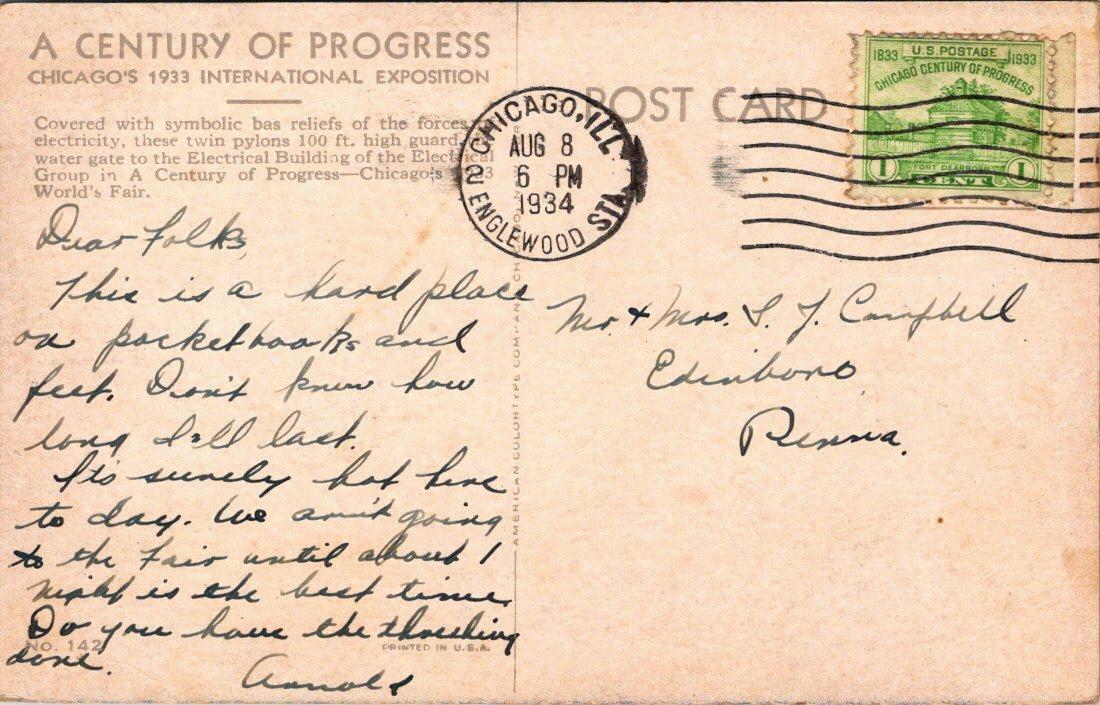 A CENTURY OF PROGRESS
CHICAGO'S 1933 INTERNATIONAL EXPOSITION
Covered with symbolic bas reliefs of the forces
electricity, these twin pylons 100 ft. high guard
water gate to the Electrical Building of the Electrical
Group in A Century of Progress—Chicago's 1933
World's Fair.
Dear Folks,
This is a hard place
on pocketbooks and
feet. Don't know how
long I'll last.
It's surely hot here
to day. We ain't going
to the Fair until about 1
night is the best time.
Do you have the threshing
done.
Arnold
NO. 142
PRINTED IN U.S.A.
AMERICAN COLORTYPE COMPANY
POST CARD
CHICAGO, ILL.
AUG 8
6 PM
1934
ENGLEWOOD STA.
2
1833 U.S. POSTAGE 1933
CHICAGO CENTURY OF PROGRESS
FORT DEARBORN
1 CENT 1
Mr & Mrs. L. J. Campbell
Edinboro
Penna.